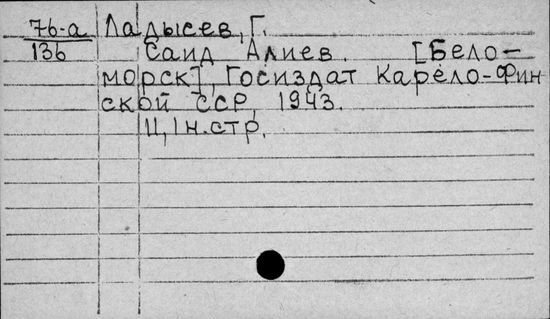 76-а Ладысев, Г.
136 Саид Алиев. [Бело-
морск], Госиздат Карело-Фин
ской ССР, 1943.
11, 1 н. стр.